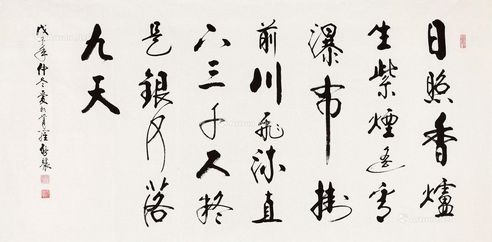 日照香爐
生紫煙遙看
瀑布掛
前川飛流直
下三千尺疑
是銀河落
九天
戊子年仲冬